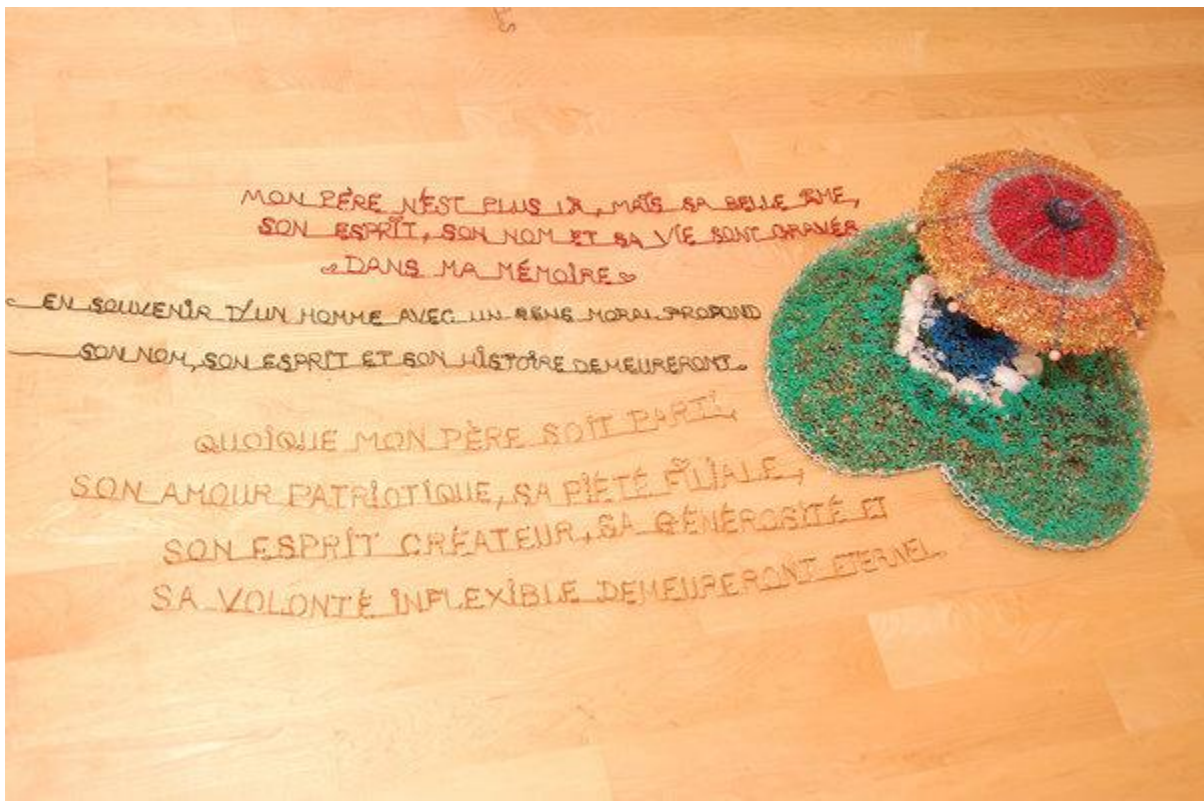 MON PÈRE N'EST PLUS LÀ, MAIS SA BELLE ÂME,
SON ESPRIT, SON NOM ET SA VIE SONT GRAVÉS
DANS MA MÉMOIRE
EN SOUVENIR D'UN HOMME AVEC UN SENS MORAL PROFOND
SON NOM, SON ESPRIT ET SON HISTOIRE DEMEURERONT.
QUOIQUE MON PÈRE SOIT PARTI,
SON AMOUR PATRIOTIQUE, SA PIÉTÉ FILIALE,
SON ESPRIT CRÉATEUR, SA GÉNÉROSITÉ ET
SA VOLONTÉ INFLEXIBLE DEMEURERONT ETERNEL.